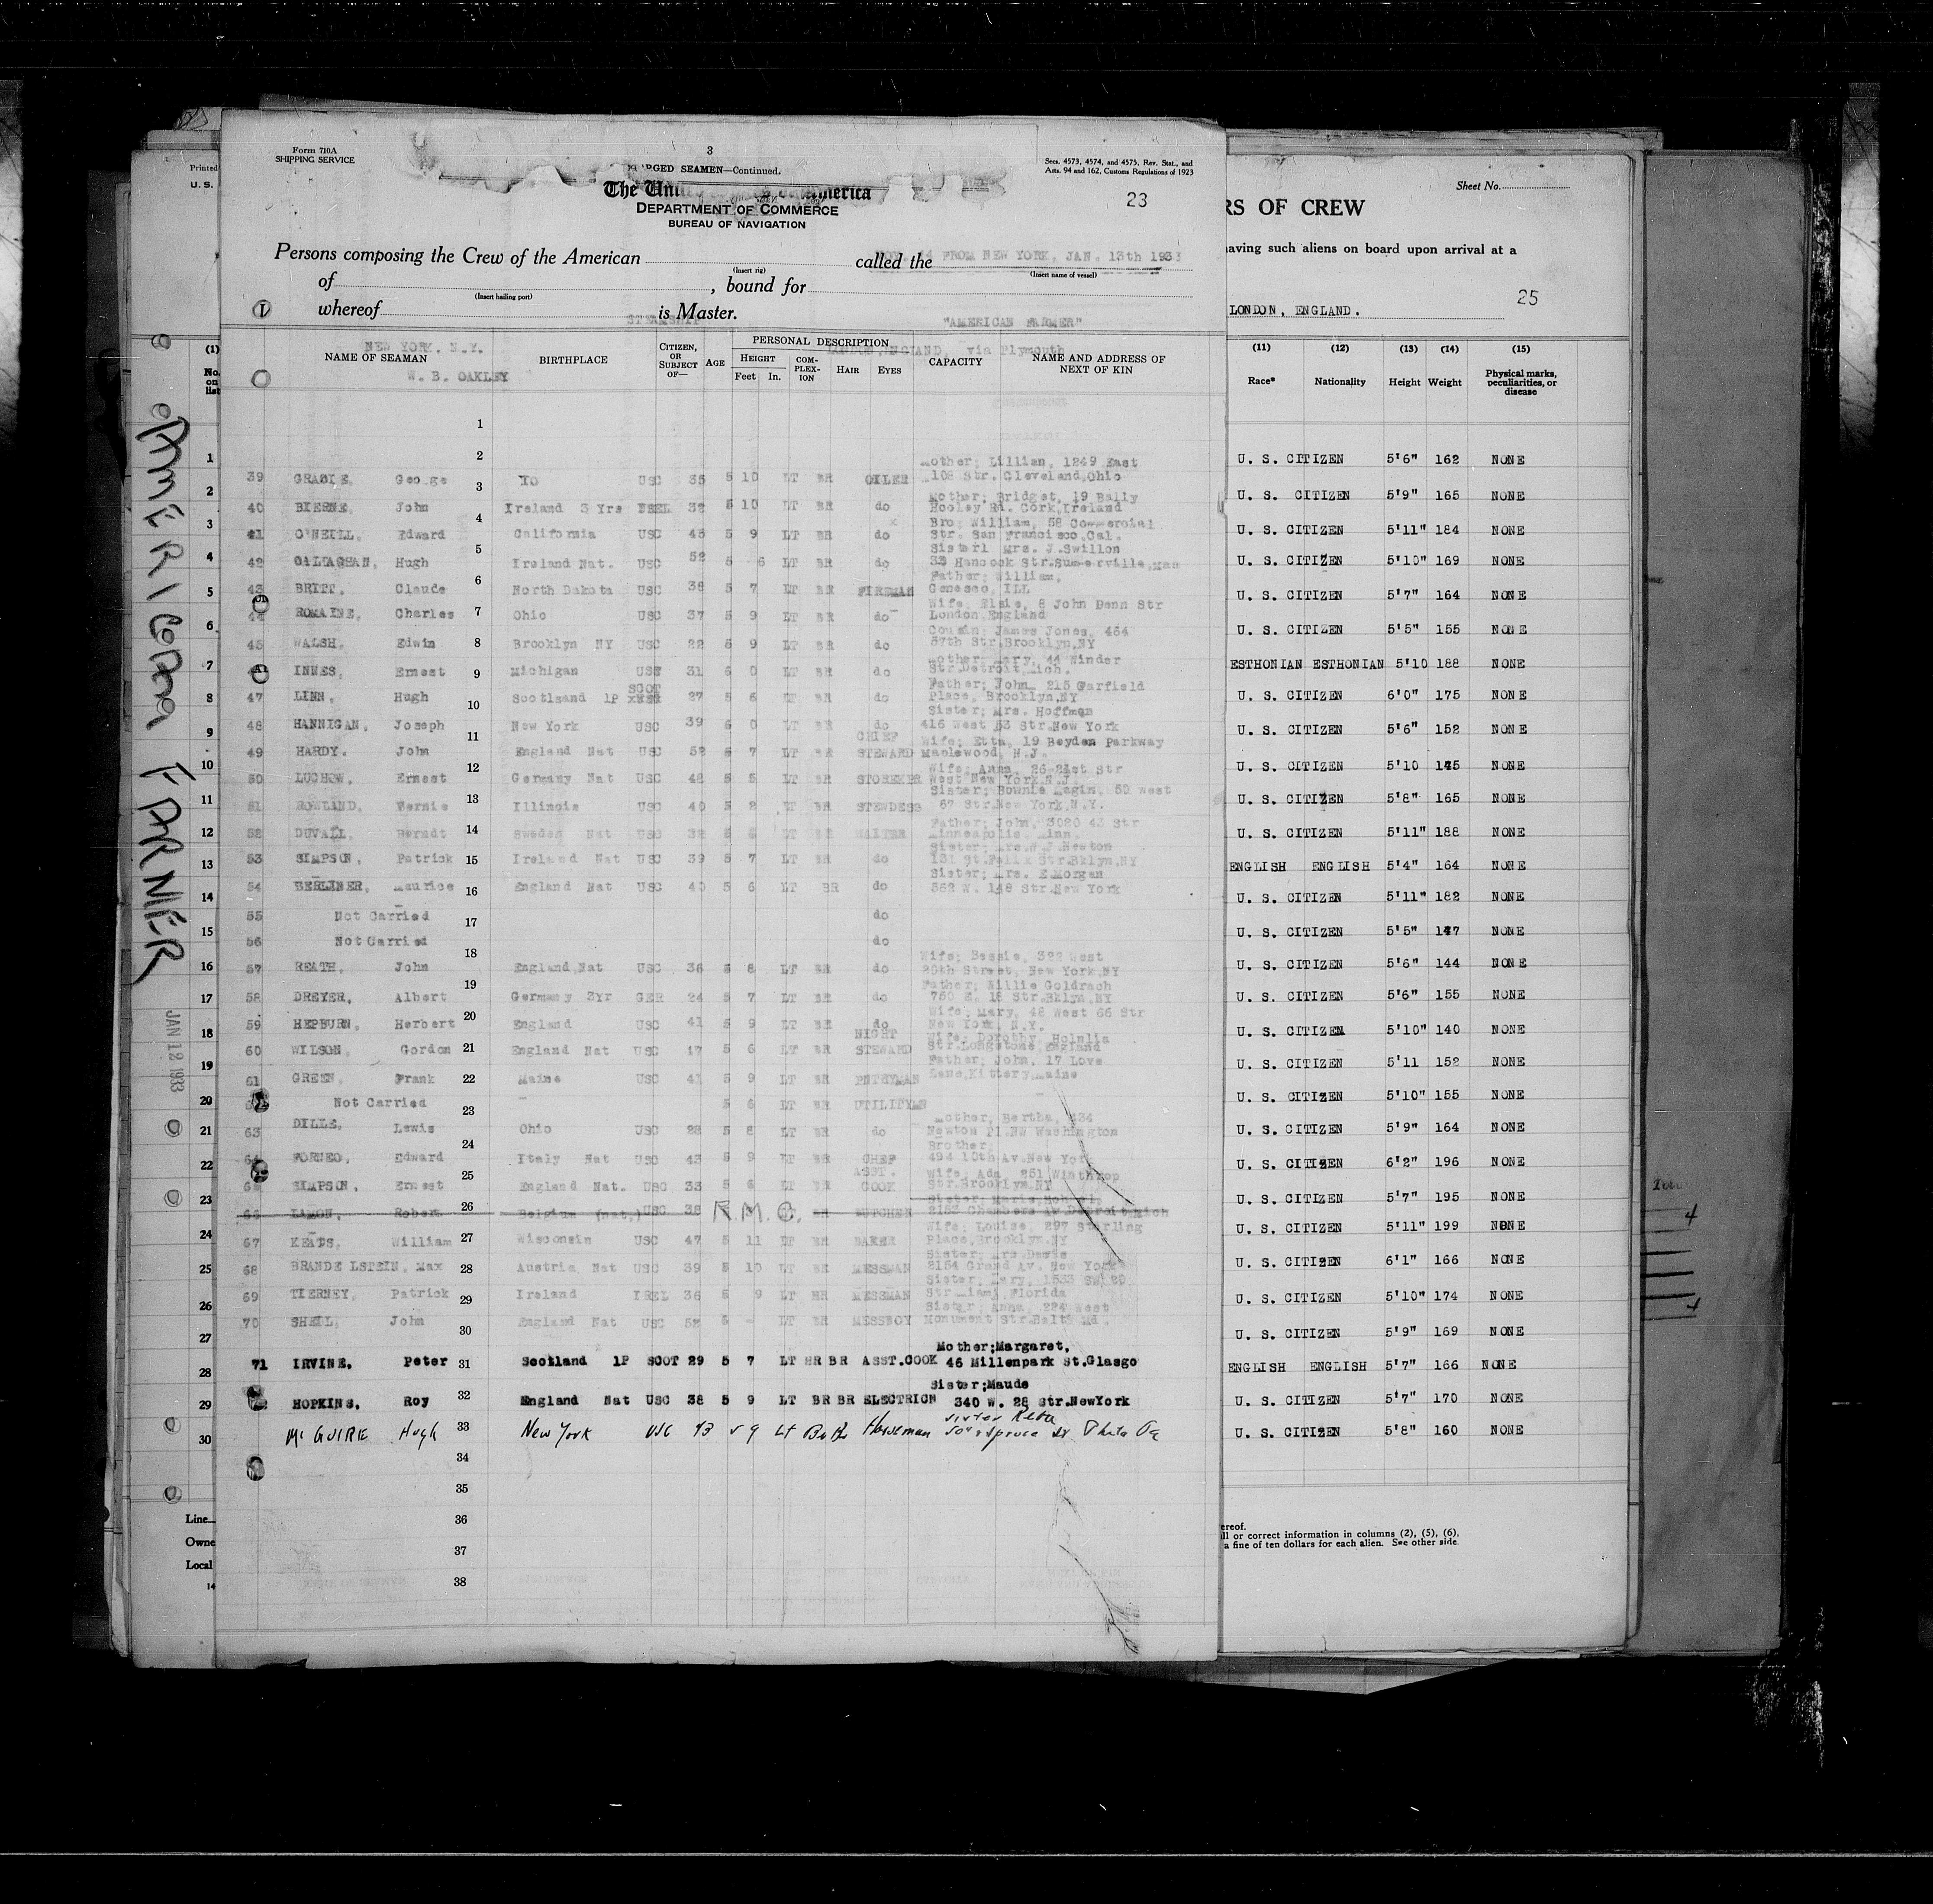 Form 710A
SHIPPING SERVICE
3
RGED SEAMEN—Continued.
Secs. 4573, 4574, and 4575, Rev. Stat., and
Arts. 94 and 162, Customs Regulations of 1923
The Uni merica
DEPARTMENT OF COMMERCE
BUREAU OF NAVIGATION
23
FROM NEW YORK, JAN. 13th 1933
Persons composing the Crew of the American called the
(Insert rig) (Insert name of vessel)
of , bound for
(Insert hailing port)
whereof is Master.
STEAMSHIP "AMERICAN FARMER"
NEW YORK, N.Y. ENGLAND, via Plymouth
W. B. OAKLEY
NAME OF SEAMAN BIRTHPLACE CITIZEN, OR SUBJECT OF— AGE PERSONAL DESCRIPTION HEIGHT Feet In. COMPLEXION HAIR EYES CAPACITY NAME AND ADDRESS OF NEXT OF KIN
1
2
Mother; Lillian, 1249 East
39 George USC 35 5 10 LT BR OILER 108 Str. Cleveland, Ohio
3
Mother; Bridget, 19 Bally
40 BIERNE, John Ireland 3 Yrs 32 5 10 LT BR do Hooley Rd. Cork, Ireland
4
Bro; William, 58 Commercial
41 O'NEILL, Edward California USC 43 5 9 LT BR do Str. San Francisco, Cal.
5
Sisterl Mrs. J. Swillon
42 CALLAGHAN, Hugh Ireland Nat. USC 52 5 6 LT BR do 33 Hancock Str. Summerville, Mas
6
Father; William,
43 BRITT, Claude North Dakota USC 38 5 7 LT BR FIREMAN Geneseo, ILL
7
Wife, Elsie, 8 John Penn Str
44 ROMAINE, Charles Ohio USC 37 5 9 LT BR do London, England
8
Cousin; James Jones, 464
45 WALSH, Edwin Brooklyn NY USC 22 5 9 LT BR do 57th Str. Brooklyn, NY
9
Mother; Mary, 44 Winder
INNES, Ernest Michigan USC 31 6 0 LT BR do Str. Detroit, Mich.
10
Father; John, 215 Garfield
47 LINN, Hugh Scotland 1P SCOT 27 5 6 LT BR do Place, Brooklyn, NY
Sister; Mrs. Hoffman
48 HANNIGAN, Joseph New York USC 39 6 0 LT BR do 416 West 53 Str. New York
11
Wife; Etta, 19 Boyden Parkway
49 HARDY. John England Nat USC 52 5 7 LT BR CHIEF STEWARD Maplewood, N.J.
12
Wife; Anna, 26-21st Str
50 LUCHOW, Ernest Germany Nat USC 48 5 5 LT BR STOREKPR West New York, N.J.
13
51 ROWLAND, Illinois USC 40 5 2 LT BR STEWDESS 67 Str. New York, N.Y.
14
Father; John, 3020 43 Str
52 DUVALL, Berndt Sweden Nat USC LT BR WAITER Minneapolis, Minn.
15
Sister; Mrs. W.J. Newton
53 SIMPSON, Patrick Ireland Nat USC 39 5 7 LT BR do 131 St. Felix Str. Bklyn, NY
16
Sister; Mrs. E Morgan
54 BERLINER, Maurice England Nat USC 40 5 6 LT BR do 562 W. 148 Str. New York
17
55 Not Carried do
56 Not Carried do
18
Wife; Bessie, 322 West
57 REATH, John England, Nat USC 36 5 8 LT BR do 20th Street, New York, NY
19
Father; Willie Goldrach
58 DREYER, Albert Germany 3Yr GER 24 5 7 LT BR do 750 E. 18 Str. Bklyn, NY
20
Wife; Mary, 46 West 66 Str
59 HEPBURN, Herbert England USC 41 5 9 LT BR do New York, N.Y.
21
60 WILSON, Gordon England Nat USC 17 5 6 LT BR NIGHT STEWARD Str. Longstone, England
22
Father; John, 17 Love
61 GREEN, Frank Maine USC 41 5 9 LT BR PNTRYMAN Lane, Kittery, Maine
23
Not Carried 5 6 LT BR UTILITYMN
Mother, Bertha, 434
63 DILLE, Lewis Ohio USC 28 5 8 LT BR do Newton Pl. NW Washington
24
Brother;
64 FORNEO, Edward Italy Nat USC 43 5 9 LT BR CHEF 494 10th Av. New York
25
Wife, Ada, 251 Winthrop
65 SIMPSON, Ernest England Nat. USC 33 5 6 LT BR ASST. COOK Str. Brooklyn, NY
26
66 LAMON, Robert Belgium (nat.) USC 38 F.M.C. BR BUTCHER 2153 Chambers Av Detroit, Mich
27
Wife; Louise, 297 Sterling
67 KEATS, William Wisconsin USC 47 5 11 LT BR BAKER Place, Brooklyn, NY
28
Sister; Mrs Davis
68 BRANDE LSTEIN, Max Austria Nat USC 39 5 10 LT BR MESSMAN 2154 Grand Av. New York
29
Sister, Mary, 1533 SW 20
69 TIERNEY, Patrick Ireland IREL 36 5 9 LT BR MESSMAN Str Miami, Florida
30
Sister; Anna, 224 West
70 SHEIL, John England Nat USC 52 LT BR MESSBOY Monument Str. Balt. Md.
Mother;Margaret,
71 IRVINE, Peter 31 Scotland 1P SCOT 29 5 7 LT BR BR ASST.COOK 46 Millenpark St.Glasgo
Sister;Maude
32
HOPKINS, Roy England Nat USC 38 5 9 LT BR BR ELECTRICN 340 W. 28 Str.NewYork
Sister Reba
Mc GUIRE Hugh 33 New York USC 43 5 9 Lt Br Br Horseman Spruce St Phila Pa
34
35
36
37
38
Printed
U. S.
(1)
No. on list
1
2
3
4
5
6
7
8
9
10
11
12
13
14
15
16
17
18
19
20
21
22
23
24
25
26
27
28
29
30
Line
Owne
Local
14
AMERICAN FARMER
JAN 12 1933
Sheet No.
RS OF CREW
aving such aliens on board upon arrival at a
25
LONDON, ENGLAND.
(11) (12) (13) (14) (15)
Race* Nationality Height Weight Physical marks, peculiarities, or disease
U. S. CITIZEN 5'6" 162 NONE
U. S. CITIZEN 5'9" 165 NONE
U. S. CITIZEN 5'11" 184 NONE
U. S. CITIZEN 5'10" 169 NONE
U. S. CITIZEN 5'7" 164 NONE
U. S. CITIZEN 5'5" 155 NONE
ESTHONIAN ESTHONIAN 5'10 188 NONE
U. S. CITIZEN 6'0" 175 NONE
U. S. CITIZEN 5'6" 152 NONE
U. S. CITIZEN 5'10 145 NONE
U. S. CITIZEN 5'8" 165 NONE
U. S. CITIZEN 5'11" 188 NONE
ENGLISH ENGLISH 5'4" 164 NONE
U. S. CITIZEN 5'11" 182 NONE
U. S. CITIZEN 5'5" 147 NONE
U. S. CITIZEN 5'6" 144 NONE
U. S. CITIZEN 5'6" 155 NONE
U. S. CITIZEN 5'10" 140 NONE
U. S. CITIZEN 5'11 152 NONE
U. S. CITIZEN 5'10" 155 NONE
U. S. CITIZEN 5'9" 164 NONE
U. S. CITIZEN 6'2" 196 NONE
U. S. CITIZEN 5'7" 195 NONE
U. S. CITIZEN 5'11" 199 NONE
U. S. CITIZEN 6'1" 166 NONE
U. S. CITIZEN 5'10" 174 NONE
U. S. CITIZEN 5'9" 169 NONE
ENGLISH ENGLISH 5'7" 166 NONE
U. S. CITIZEN 5'7" 170 NONE
U. S. CITIZEN 5'8" 160 NONE
ereof.
ll or correct information in columns (2), (5), (6),
a fine of ten dollars for each alien. See other side.
4
4